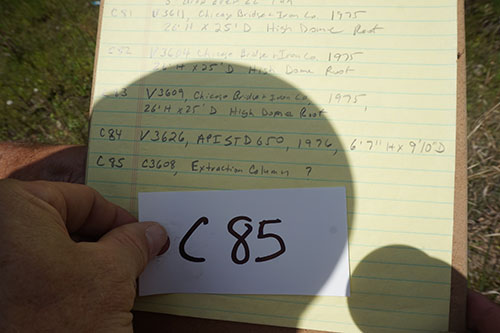 C81 V3611, Chicago Bridge & Iron Co. 1975
26'H x 25'D High Dome Roof
C82 V3604 Chicago Bridge & Iron Co. 1975
26'H x 25'D High Dome Roof
V3609, Chicago Bridge & Iron Co. 1975,
26'H x 25'D High Dome Roof
C84 V3626, API STD 650, 1976, 6'7"H x 9'10"D
C85 C3608, Extraction Column ?
C 85